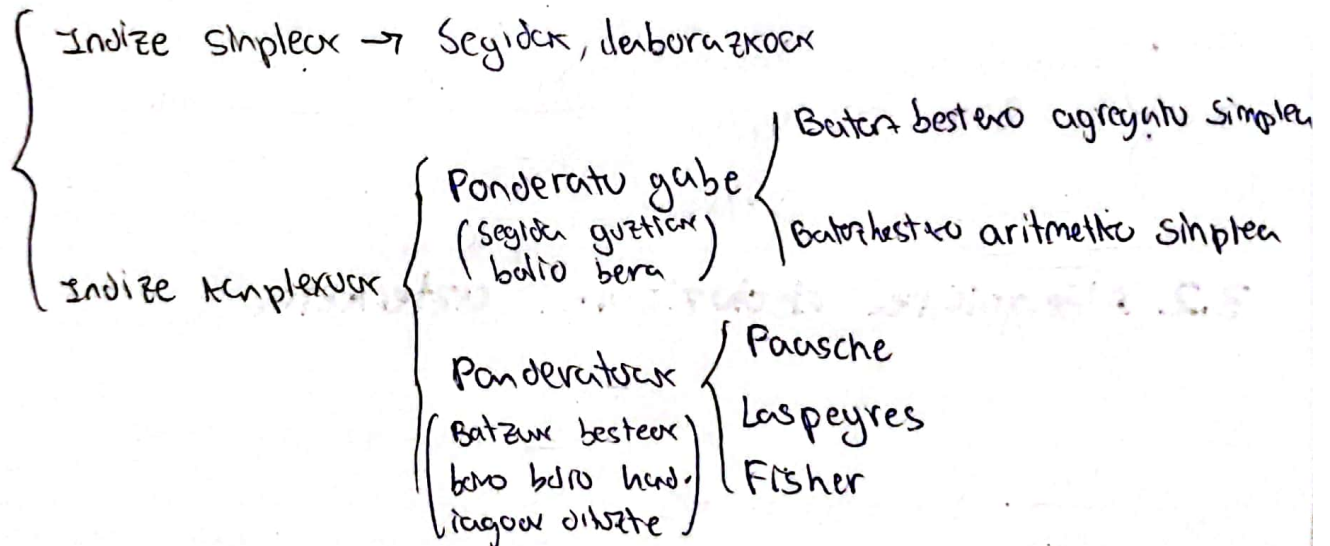 Indize sinpleak → Segidak, denborazkoak
Indize konplexuak
Ponderatu gabe
(segida guztiak
balio bera)
Batez besteko agregatu simplea
Batezbesteko aritmetiko sinplea
Ponderatuak
(Batzuk besteak
baino balio hand.
iagoak dituzte)
Paasche
Laspeyres
Fisher